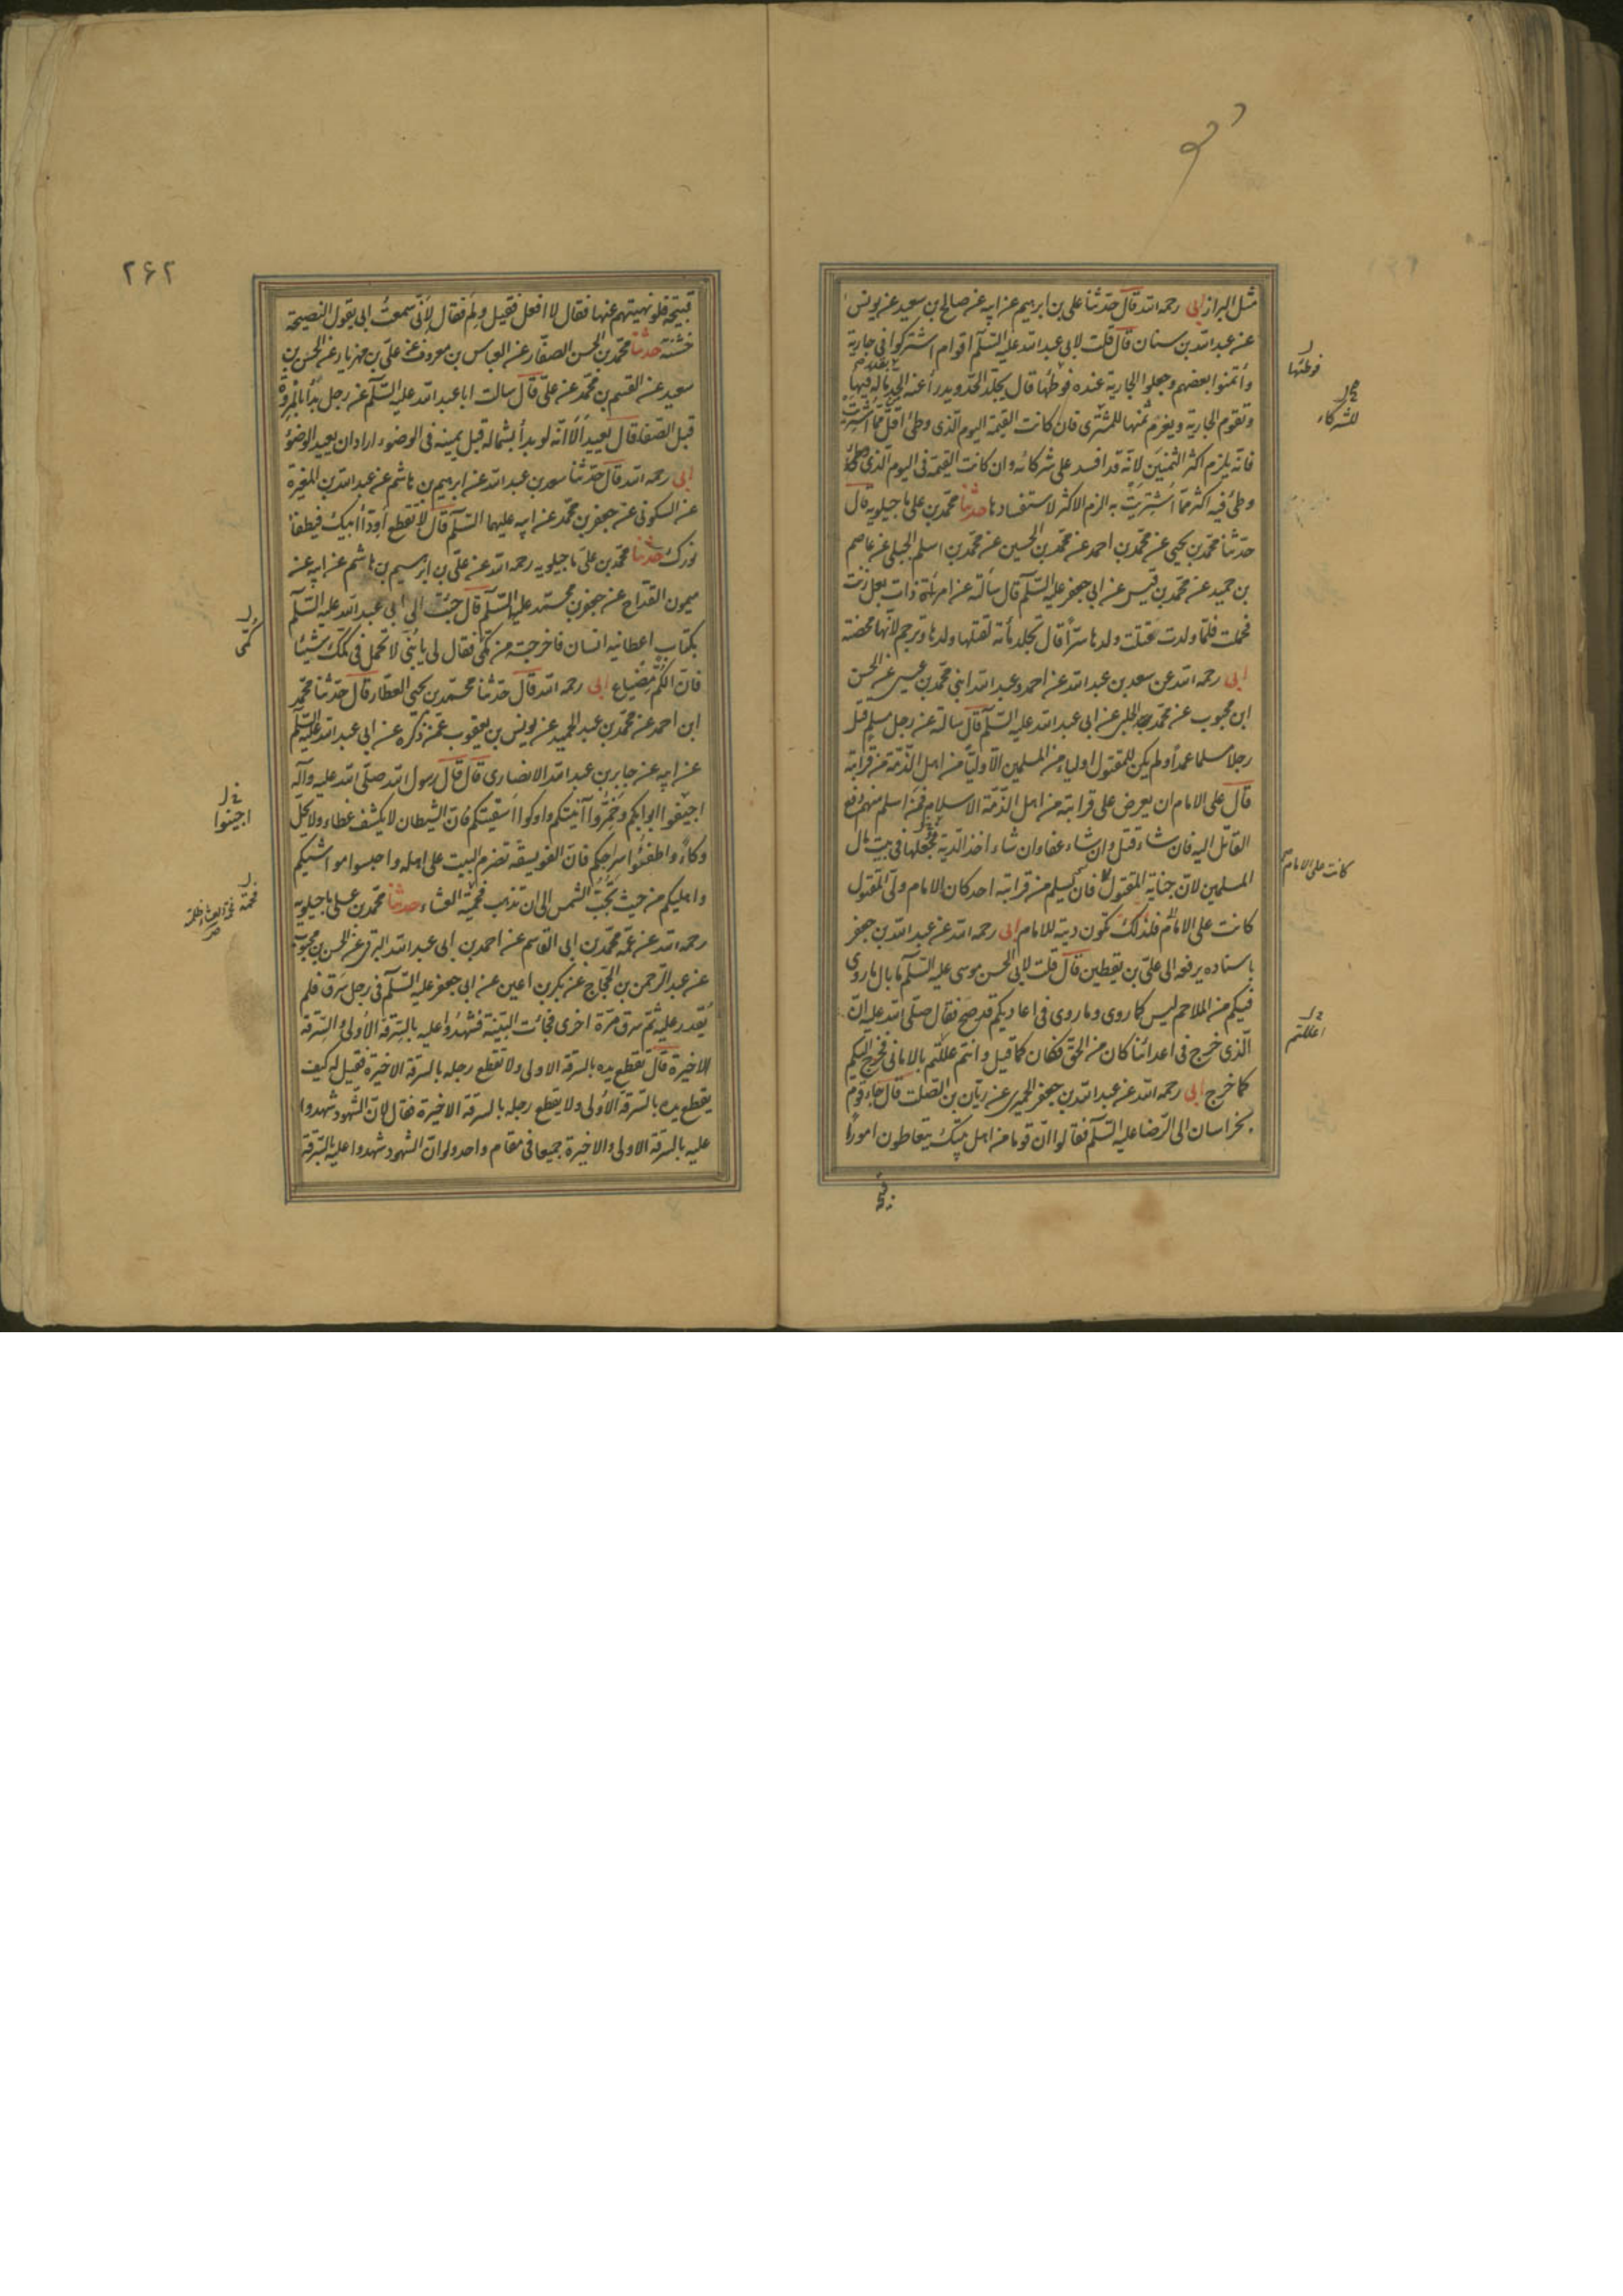 مثل البراز ابى رحمه الله قال حدثنا على بن ابرهيم عن ابيه عن صالح بن سعيد عن يونس
عن عبد الله بن سنان قال قلت لابى عبد الله عليه السلام اقوام اشتركوا فى جارية
وائتمنوا بعضهم وجعلوا الجارية عنده فوطئها قال يجلد الحد ويدرأ عنه الحد بقدر ماله فيها
وتقوم الجارية ويغرم ثمنها للمشترى فان كانت القيمة اليوم الذى وطئ اقل مما اشتريت
فانه يلزم اكثر الثمنين لانه قد افسد على شركائه وان كانت القيمة فى اليوم الذى
وطئ فيه اكثر مما اشتريت به الزم الاكثر لاستفسادها حدثنا محمد بن على ماجيلويه قال
حدثنا محمد بن يحيى عن محمد بن احمد عن محمد بن الحسين عن محمد بن اسلم الجبلى عن عاصم
بن حميد عن محمد بن قيس عن ابى جعفر عليه السلم قال سألته عن امرأة ذات بعل زنت
فحملت فلما ولدت قتلت ولدها سرا قال تجلد مأته لقتلها ولدها وترجم لانها محصنة
ابى رحمه الله عن سعد بن عبد الله عن احمد وعبد الله ابنى محمد بن عيسى عن الحسن
ابن محبوب عن محمد الحلبى عن ابى عبد الله عليه السلم قال سالته عن رجل مسلم قتل
رجلا مسلما عمدا ولم يكن للمقتول اولياء من المسلمين الا وليا من اهل الذمة من قرابته
قال على الامام ان يعرض على قرابته من اهل الذمة الاسلام فمن اسلم منهم دفع
القاتل اليه فان شاء قتل وان شاء عفا وان شاء اخذ الدية فجعلها فى بيت مال
المسلمين لان جناية المقتول فان لم يسلم من قرابته احد كان الامام ولى المقتول
كانت على الامام فلذلك تكون ديته للامام ابى رحمه الله عن عبد الله بن جعفر
باسناده يرفعه الى على بن يقطين قال قلت لابى الحسن موسى عليه السلم ما بال ما روى
فيكم من الملاحم ليس كما روى وما روى فى اعاديكم قد صح فقال صلى الله عليه ان
الذى خرج فى اعدائنا كان من الحق فكان كما قيل وانتم عللتم بالامانى فخرج اليكم
كما خرج ابى رحمه الله عن عبد الله بن جعفر الحميرى عن ريان بن الصلت قال جاء قوم
بخراسان الى الرضا عليه السلم فقالوا ان قوما من اهل بيتك يتعاطون امورا
فوطئها
للشركاء
كانت على الامام
اعللتم
٢۶٢
قبيحة فلو نهيتهم عنها فقال لا افعل فقيل ولم فقال لانى سمعت ابى يقول النصيحة
خشنة حدثنا محمد بن الحسن الصفار عن العباس بن معروف عن على بن مهزيار عن الحسن بن
سعيد عن القسم بن محمد عن على قال سالت ابا عبد الله عليه السلم عن رجل بدأ بالمروة
قبل الصفا قال يعيد الا انه لو بدأ بشماله قبل يمينه فى الوضوء اراد ان يعيد الوضوء
ابى رحمه الله قال حدثنا سعد بن عبد الله عن ابرهيم بن هاشم عن عبد الله بن المغيرة
عن السكونى عن جعفر بن محمد عن ابيه عليهما السلم قال لا تقطع اوداء ابيك فيطفأ
نورك حدثنا محمد بن على ماجيلويه رحمه الله عن على بن ابرهيم بن هاشم عن ابيه عن
ميمون القداح عن جعفر بن محمد عليهما السلم قال جئت الى ابى عبد الله عليه السلم
بكتاب اعطانيه انسان فاخرجته من كمى فقال لى يا بنى لا تحمل فى كمك شيئا
فان الكم مضياع ابى رحمه الله قال حدثنا محمد بن يحيى العطار قال حدثنا محمد
ابن احمد عن محمد بن عبد الحميد عن يونس بن يعقوب عمن ذكره عن ابى عبد الله عليه السلم
عن ابيه عن جابر بن عبد الله الانصارى قال قال رسول الله صلى الله عليه وآله
اجيفوا ابوابكم وخمروا آنيتكم واوكوا اسقيتكم فان الشيطان لا يكشف غطاء ولا يحل
وكاء واطفئوا سراجكم فان الفويسقة تضرم البيت على اهله واحبسوا مواشيكم
واهليكم من حيث تجب الشمس الى ان تذهب فحمة العشاء حدثنا محمد بن على ماجيلويه
رحمه الله عن عمه محمد بن ابى القاسم عن احمد بن ابى عبد الله البرقى عن الحسن بن محبوب
عن عبد الرحمن بن الحجاج عن بكر بن اعين عن ابى جعفر عليه السلم فى رجل سرق فلم
يقدر عليه ثم سرق مرة اخرى فجائت البينة فشهدوا عليه بالسرقة الاولى والسرقة
الاخيرة قال تقطع يده بالسرقة الاولى ولا تقطع رجله بالسرقة الاخيرة فقيل له كيف
يقطع يده بالسرقة الاولى ولا يقطع رجله بالسرقة الاخيرة فقال لان الشهود شهدوا
عليه بالسرقة الاولى والاخيرة جميعا فى مقام واحد ولو ان الشهود شهدوا عليه بالسرقة
كمى